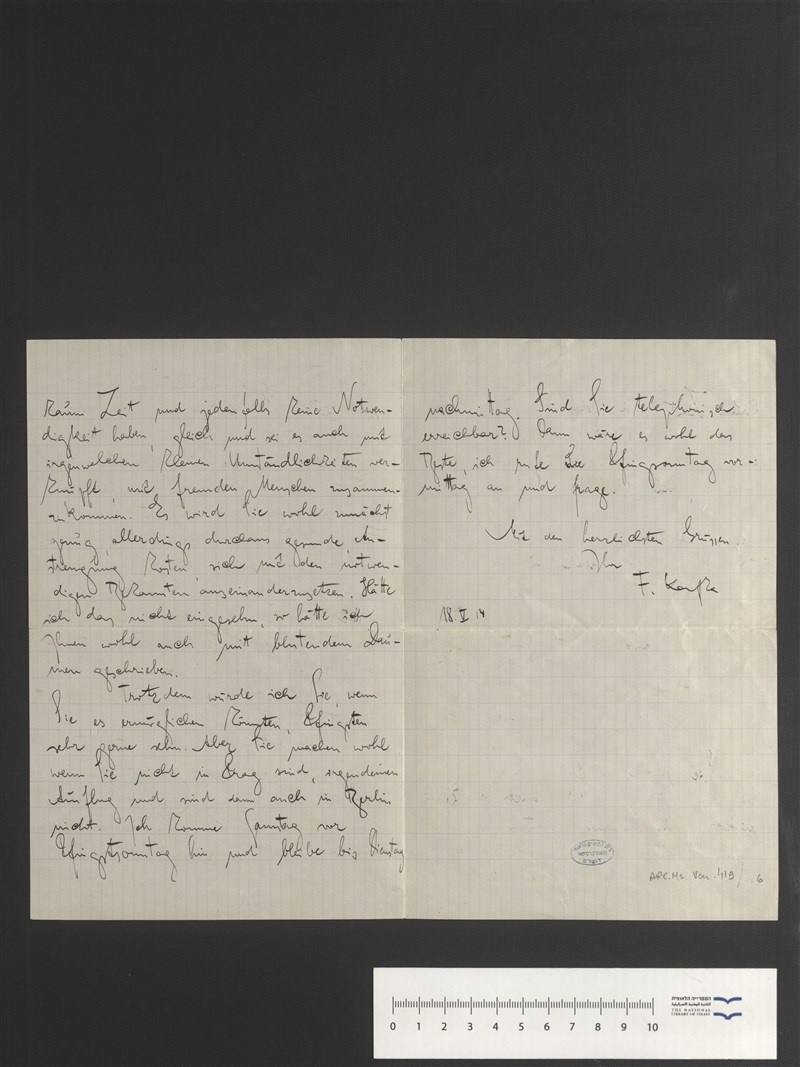 kaum Zeit und jedenfalls keine Notwen-
digkeit haben, gleich und sei es auch mit
irgendwelchen kleinen Umständlichkeiten ver-
knüpft, mit fremden Menschen zusammen-
zukommen. Es wird Sie wohl zunächst
genug, allerdings durchaus gesunde An-
strengung kosten sich mit den notwen-
digen Bekannten auseinanderzusetzen. Hätte
ich das nicht eingesehn, so hätte ich
Ihnen wohl auch mit blutendem Dau-
men geschrieben.
Trotzdem würde ich Sie, wenn
Sie es ermöglichen könnten, Pfingsten
sehr gerne sehn. Aber Sie machen wohl
wenn Sie nicht in Prag sind, irgendeinen
Ausflug und sind dann auch in Berlin
nicht. Ich komme Samstag vor
Pfingstsonntag hin und bleibe bis Dienstag
nachmittag. Sind Sie telephonisch
erreichbar? Dann wäre es wohl das
Beste, ich rufe Sie Pfingstsonntag vor-
mittag an und frage.
Mit den herzlichsten Grüssen
Ihr
F. Kafka
18. V 14
ARC. Ms. Var. 419/ 6
0 1 2 3 4 5 6 7 8 9 10
הספרייה הלאומית
THE NATIONAL
LIBRARY OF ISRAEL